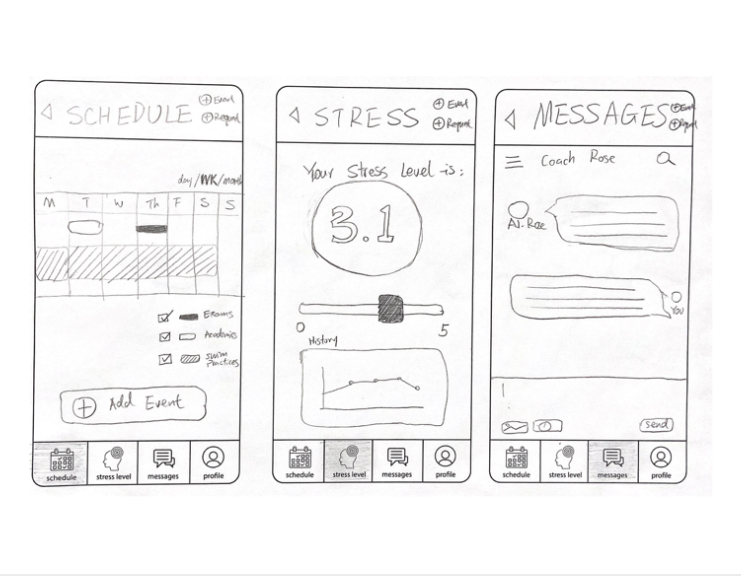 SCHEDULE
⊕ Event
⊕ Request
day/WK/month
M T W Th F S S
Exams
Academic
Swim
Practices
⊕ Add Event
schedule
stress level
messages
profile
STRESS
⊕ Event
⊕ Request
Your Stress Level is:
3.1
0
5
History
schedule
stress level
messages
profile
MESSAGES
⊕ Event
⊕ Request
Coach Rose
AJ. Rose
You
Send
schedule
stress level
messages
profile